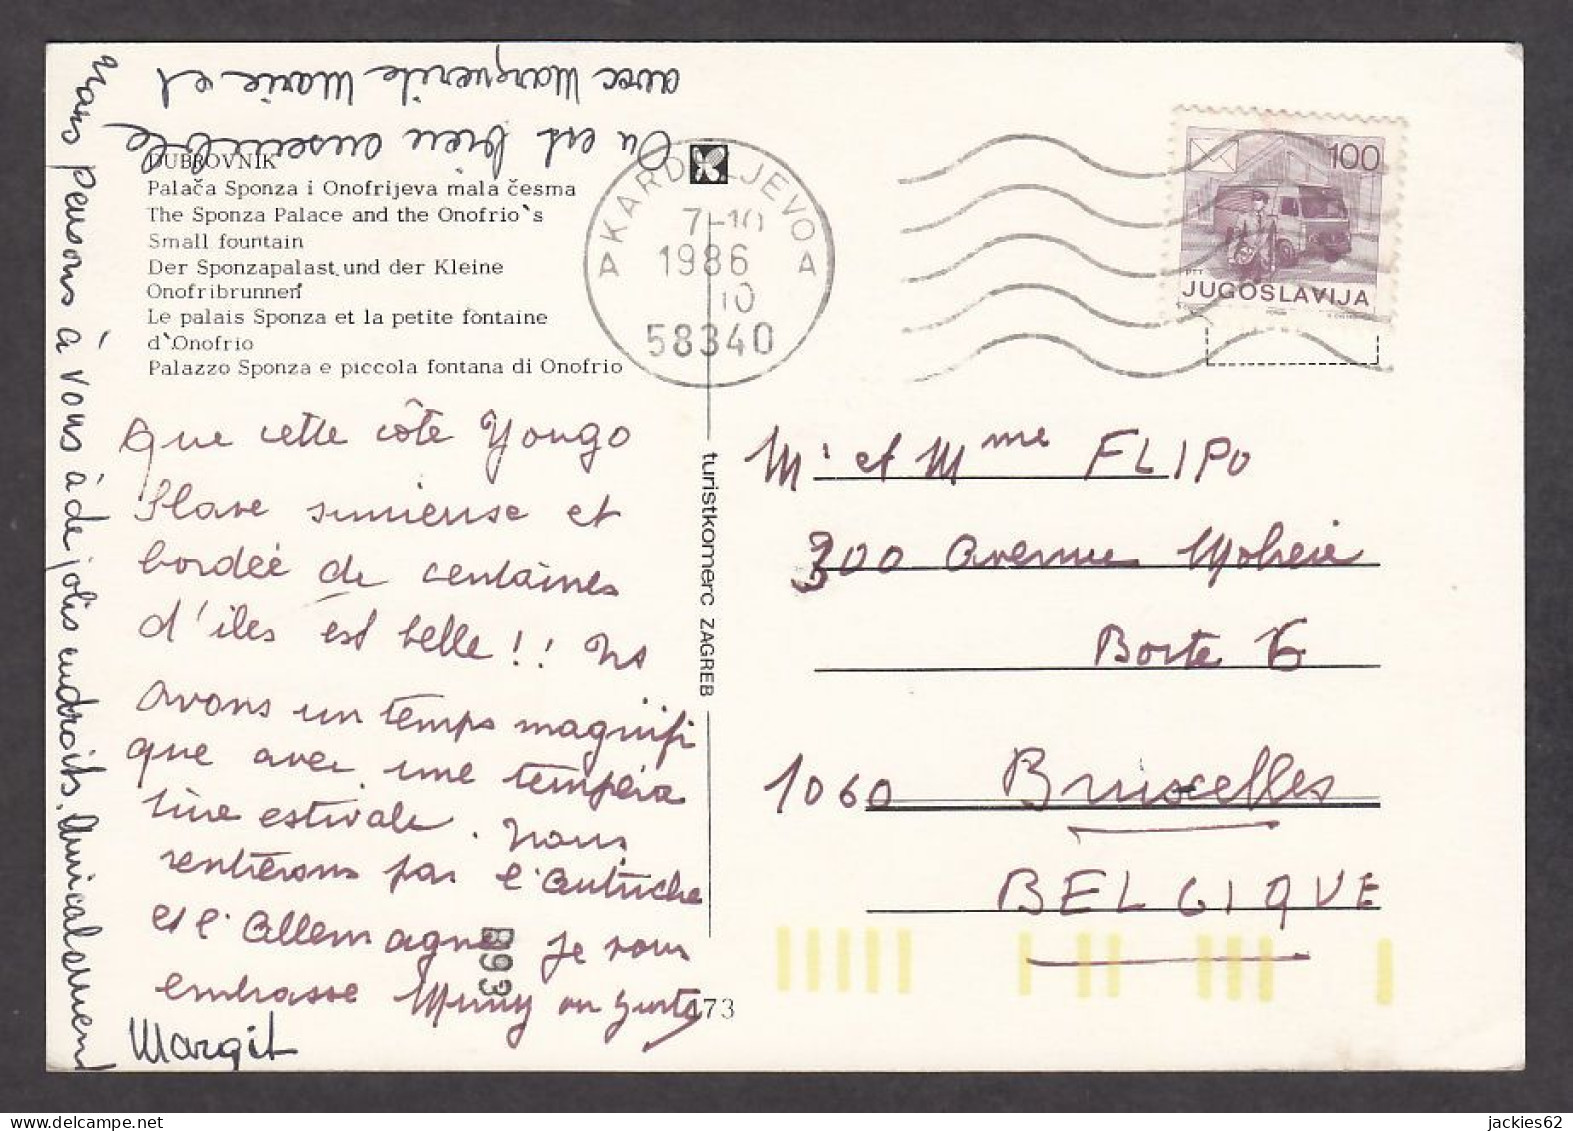 DUBROVNIK
Palača Sponza i Onofrijeva mala česma
The Sponza Palace and the Onofrio`s
Small fountain
Der Sponzapalast und der Kleine
Onofribrunnen
Le palais Sponza et la petite fontaine
d`Onofrio
Palazzo Sponza e piccola fontana di Onofrio
Que cette côte Yougo
Slave sinueuse et
bordée de centaines
d'iles est belle !! Ns
avons un temps magnifi
que avec une tempéra
ture estivale. Nous
rentrerons par l'Autriche
et l'Allemagne je vous
embrasse
Margit
On est bien ensemble
avec Marguerite Marie et
nous pensons à vous à de jolis endroits. Amicalement
KARDELJEVO
A A
7-10
1986
10
58340
100
PTT
JUGOSLAVIJA
turistkomerc ZAGREB
Mr et Mme FLIPO
300 avenue Molière
Boite 6
1060 Bruxelles
BELGIQUE
B93
173
jackies62